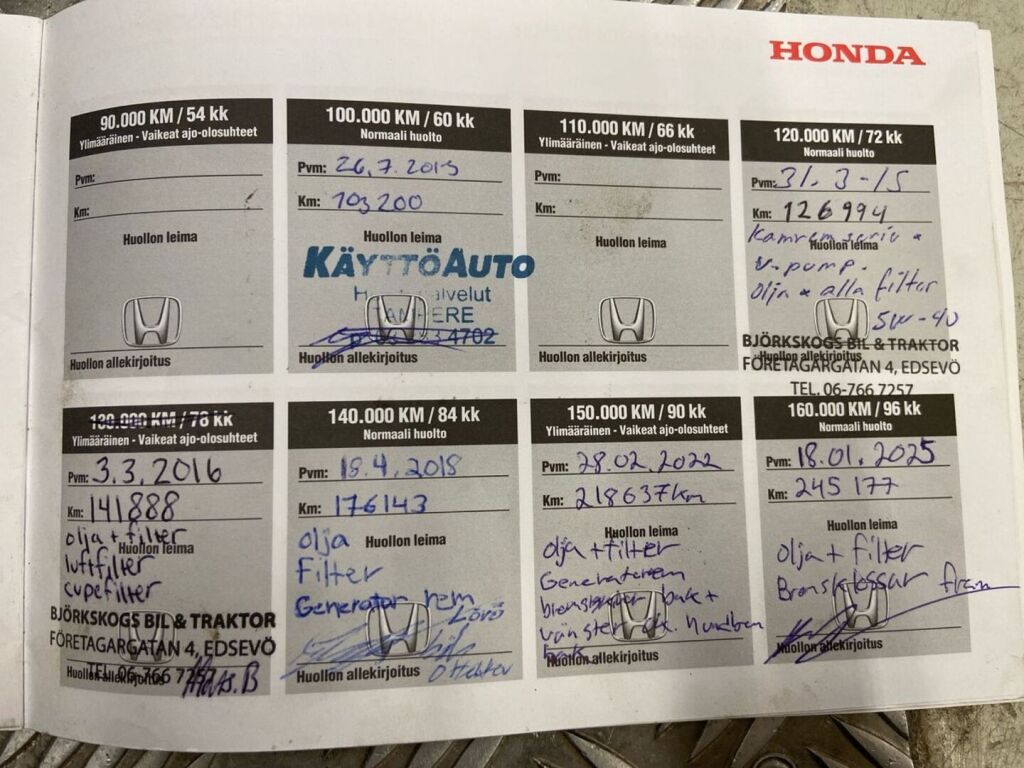 HONDA
90.000 KM / 54 kk
Ylimääräinen - Vaikeat ajo-olosuhteet
Pvm:
Km:
Huollon leima
Huollon allekirjoitus
100.000 KM / 60 kk
Normaali huolto
Pvm: 26.7.2013
Km: 103200
Huollon leima
KÄYTTÖAUTO
4702
Huollon allekirjoitus
110.000 KM / 66 kk
Ylimääräinen - Vaikeat ajo-olosuhteet
Pvm:
Km:
Huollon leima
Huollon allekirjoitus
120.000 KM / 72 kk
Normaali huolto
Pvm: 31.3-15
Km: 126994
Huollon leima
v-pump.
olja + alla filter
5W-40
BJÖRKSKOGS BIL & TRAKTOR
Huollon allekirjoitus
FÖRETAGARGATAN 4, EDSEVÖ
TEL. 06-766 7257
130.000 KM / 78 kk
Ylimääräinen - Vaikeat ajo-olosuhteet
Pvm: 3.3.2016
Km: 141888
olja + filter
Huollon leima
luftfilter
cupefilter
BJÖRKSKOGS BIL & TRAKTOR
FÖRETAGARGATAN 4, EDSEVÖ
TEL. 06-766 7257
Huollon allekirjoitus
140.000 KM / 84 kk
Normaali huolto
Pvm: 18.4.2018
Km: 176143
Huollon leima
olja
Filter
Generator rem
Huollon allekirjoitus
150.000 KM / 90 kk
Ylimääräinen - Vaikeat ajo-olosuhteet
Pvm: 28.02.2022
Km: 218637km
Huollon leima
olja + filter
bak +
vänster
bak
Huollon allekirjoitus
160.000 KM / 96 kk
Normaali huolto
Pvm: 18.01.2025
Km: 245 177
Huollon leima
olja + filter
Bromsklossar fram
Huollon allekirjoitus